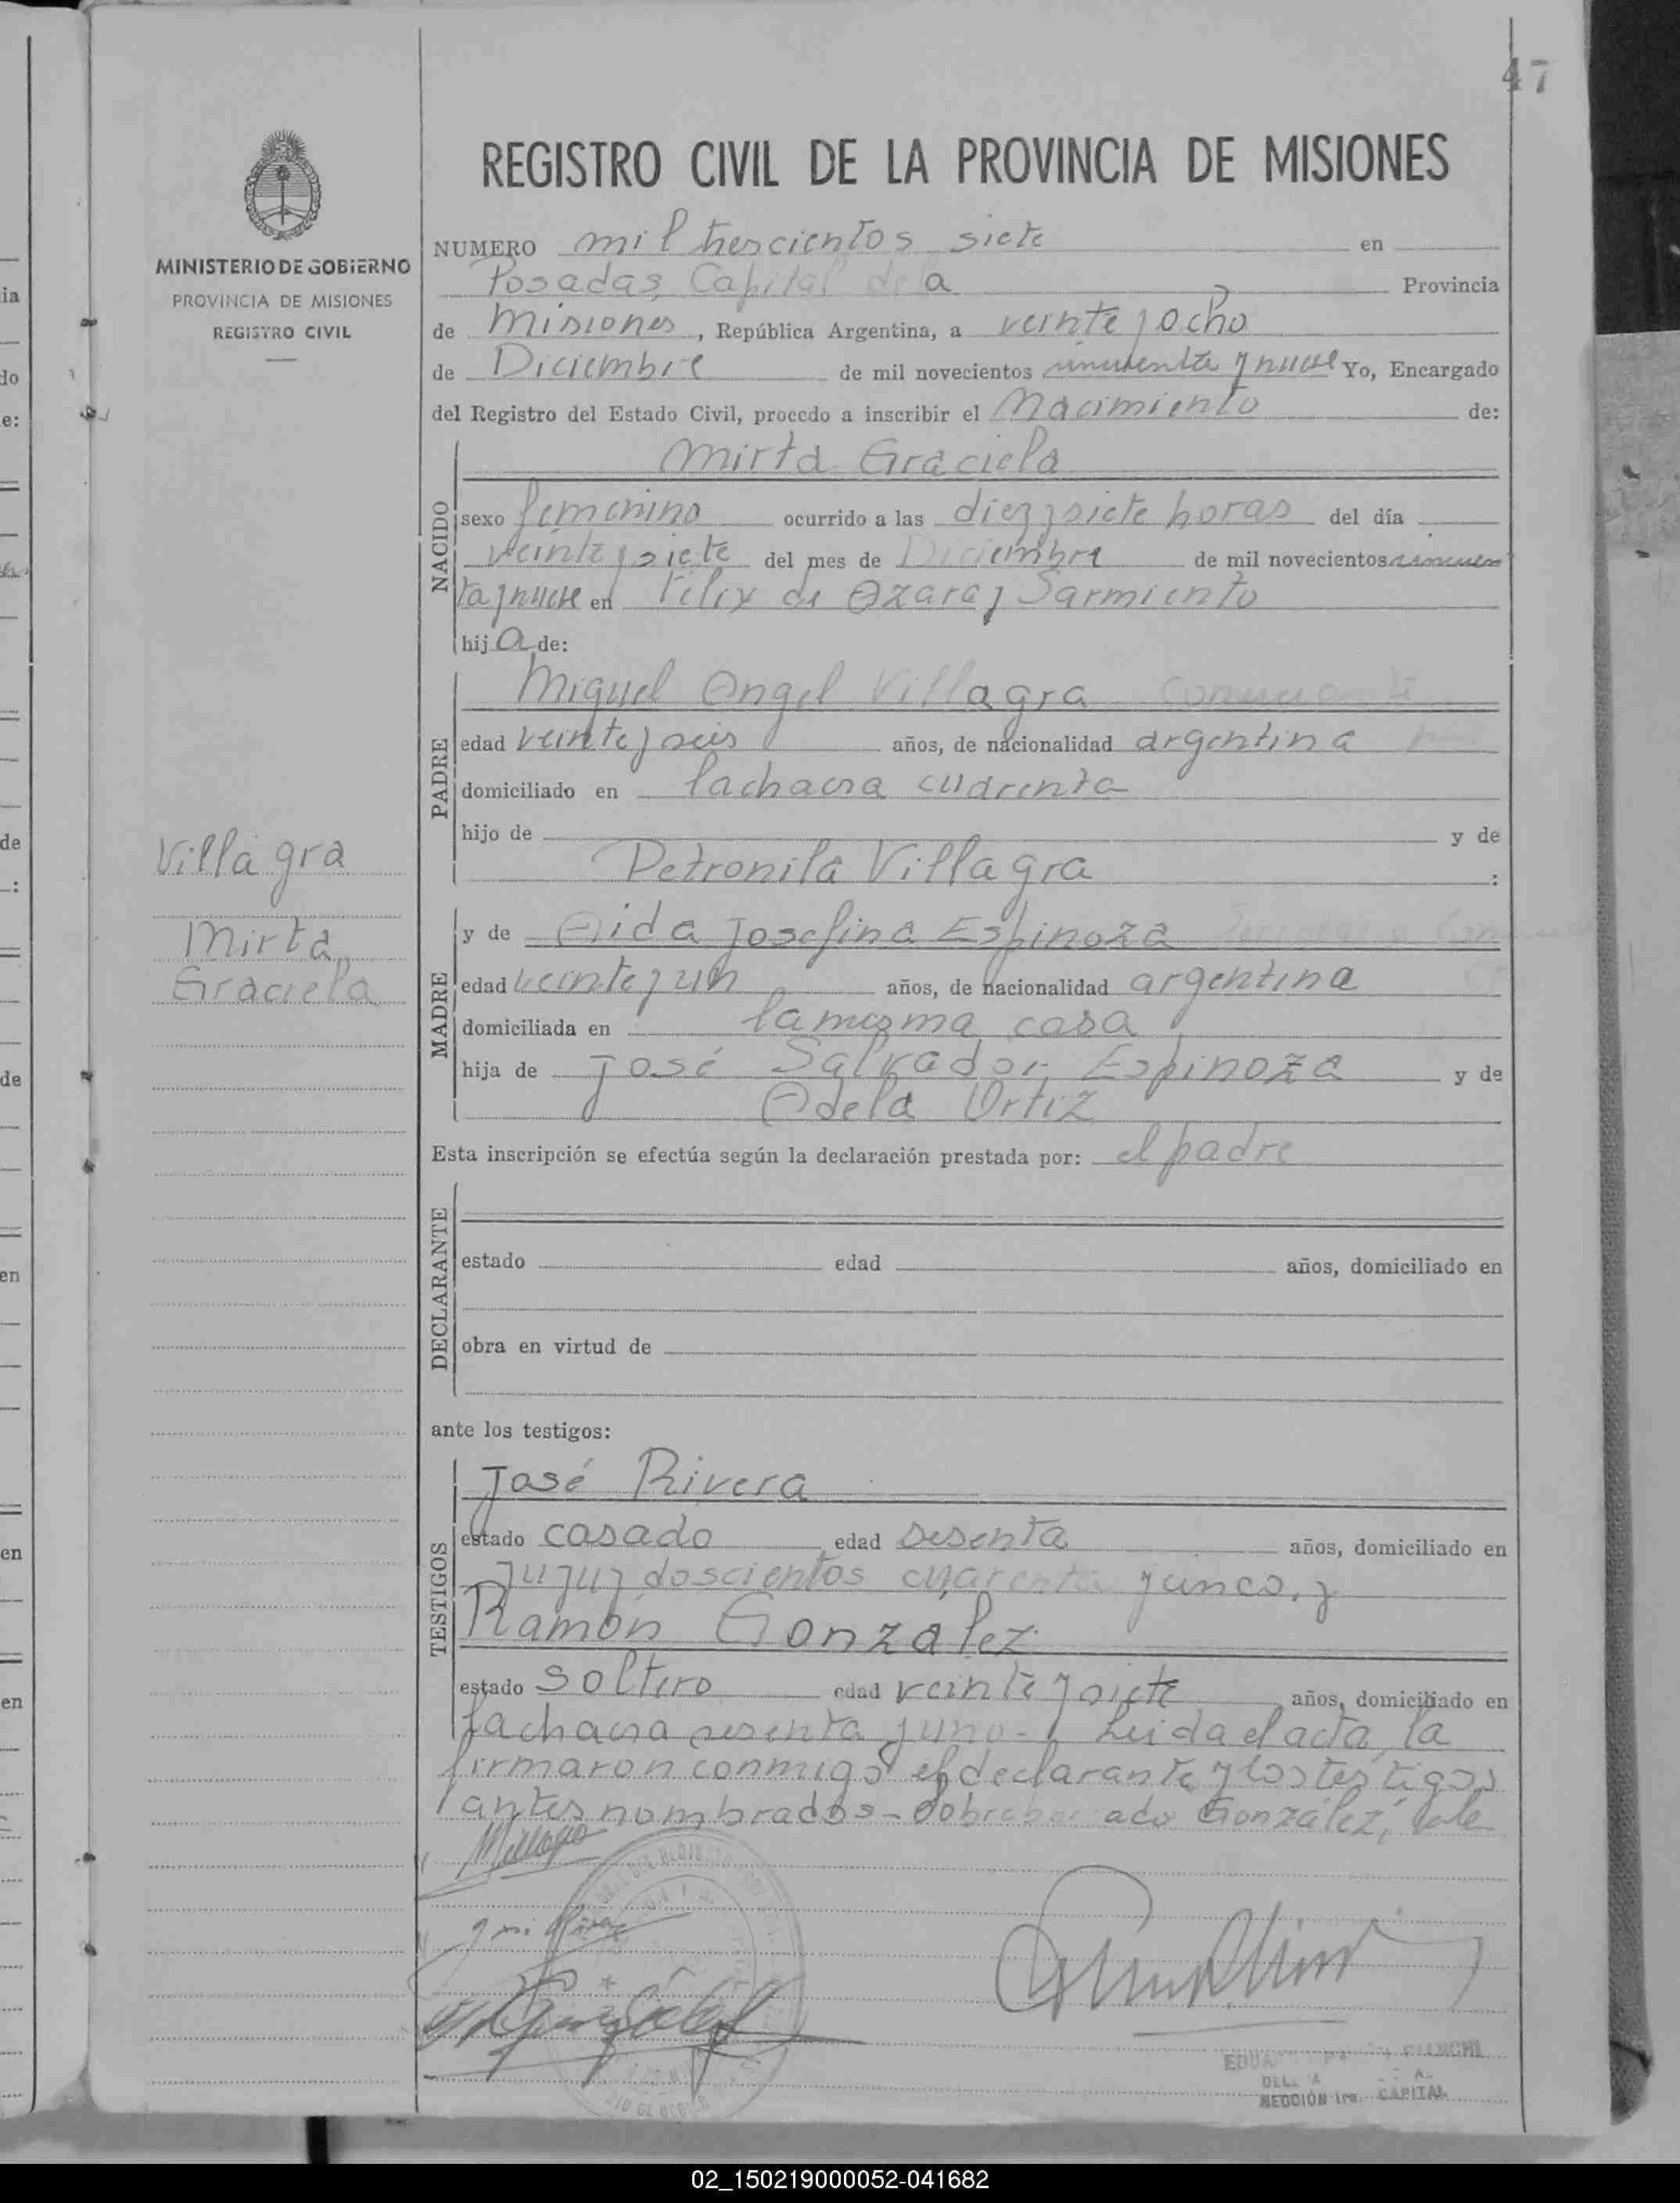 47
REGISTRO CIVIL DE LA PROVINCIA DE MISIONES
MINISTERIO DE GOBIERNO
PROVINCIA DE MISIONES
REGISTRO CIVIL
NUMERO mil trescientos siete en
Posadas, Capital de la Provincia
de Misiones, República Argentina, a veinte y ocho
de Diciembre de mil novecientos cincuenta y nueve Yo, Encargado
del Registro del Estado Civil, procedo a inscribir el Nacimiento de:
Mirta Graciela
NACIDO
sexo femenino ocurrido a las diez y siete horas del día
veinte y siete del mes de Diciembre de mil novecientos cincuen
ta y nueve en Félix de Azara y Sarmiento
hija de:
Miguel Angel Villagra
PADRE
edad veinte y seis años, de nacionalidad argentina
domiciliado en la chacra cuarenta
hijo de y de
Petronila Villagra :
Villagra
Mirta
Graciela
MADRE
y de Aida Josefina Espinoza
edad veinte y un años, de nacionalidad argentina
domiciliada en la misma casa
hija de José Salvador Espinoza y de
Adela Ortiz
Esta inscripción se efectúa según la declaración prestada por: el padre
DECLARANTE
estado edad años, domiciliado en
obra en virtud de
ante los testigos:
TESTIGOS
José Rivera
estado casado edad sesenta años, domiciliado en
Jujuy doscientos cuarenta y cinco, y
Ramón González
estado soltero edad veinte y siete años, domiciliado en
la chacra sesenta y uno - Leida el acta, la
firmaron conmigo el declarante y los testigos
antes nombrados - Sobreborrado González, vale
SECCIÓN 1ra. CAPITAL
02_150219000052-041682